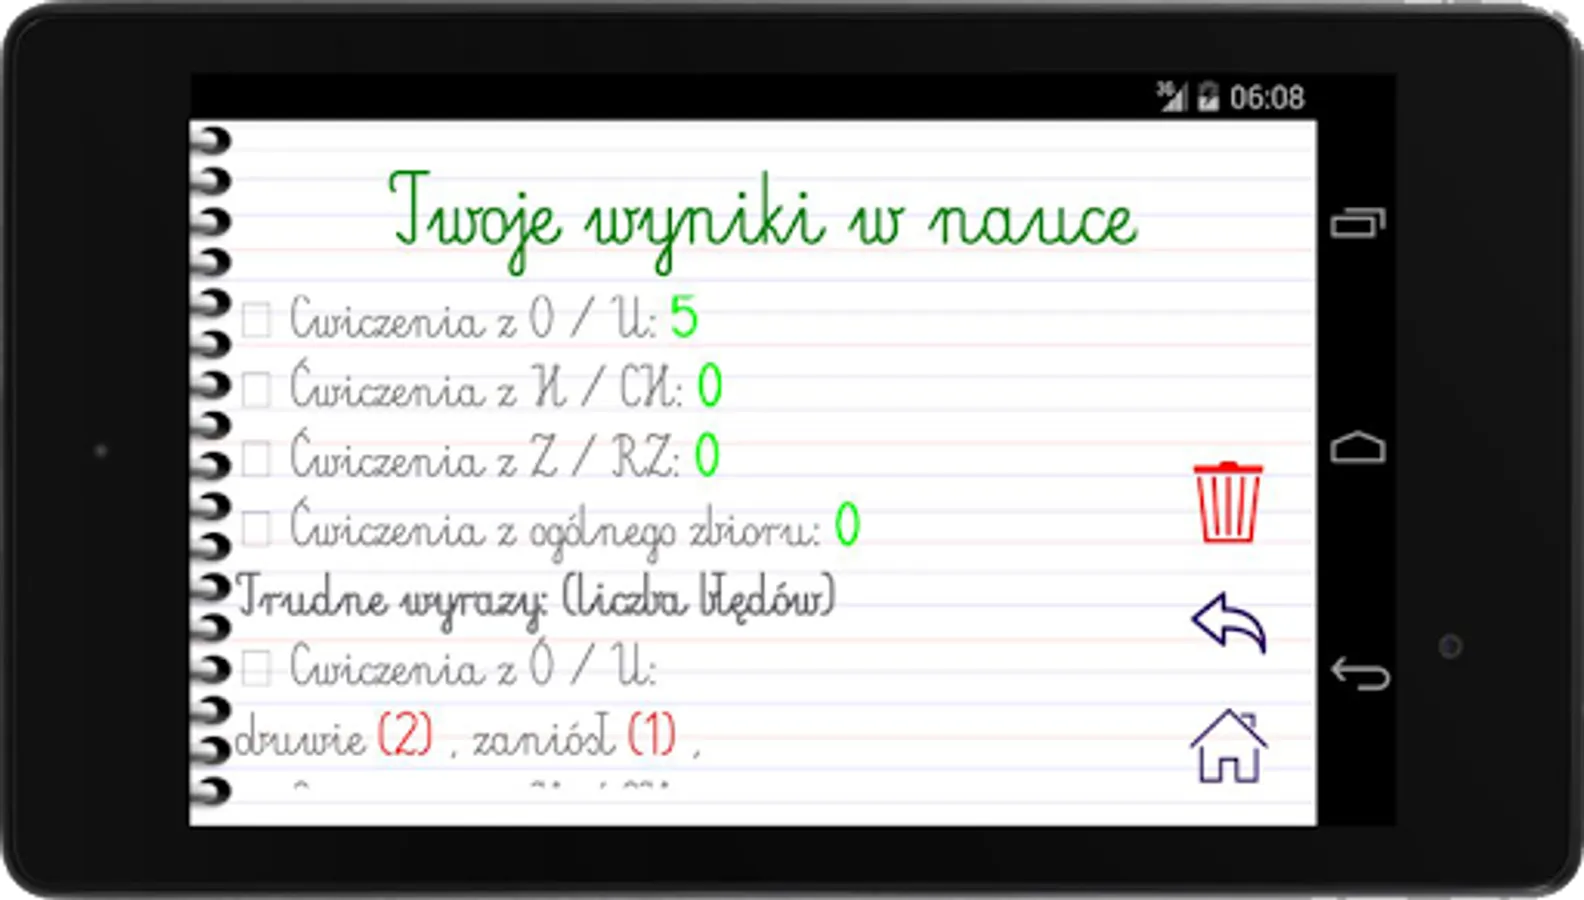 3G 06:08
Twoje wyniki w nauce
Ćwiczenia z O / U: 5
Ćwiczenia z H / CH: 0
Ćwiczenia z Z / RZ: 0
Ćwiczenia z ogólnego zbioru: 0
Trudne wyrazy: (liczba błędów)
Ćwiczenia z Ó / U:
druwie (2) , zaniósł (1) ,